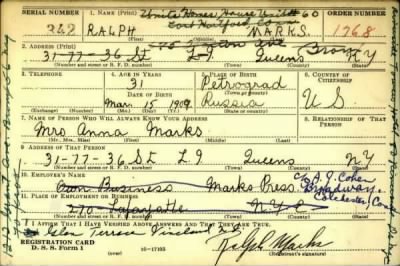 SERIAL NUMBER
1. NAME (Print)
ORDER NUMBER
RALPH
MARKS
1268
(First) (Middle) (Last)
2. ADDRESS (Print)
Bronx
31-77-36 St L.I Queens NY
(Number and street or R. F. D. number) (Town) (County) (State)
3. TELEPHONE
4. AGE IN YEARS
31
5. PLACE OF BIRTH
Petrograd
(Town or county)
6. COUNTRY OF CITIZENSHIP
DATE OF BIRTH
Mar. 15 1909
Russia
U S.
(Exchange) (Number)
(Mo.) (Day) (Yr.)
(State or country)
7. NAME OF PERSON WHO WILL ALWAYS KNOW YOUR ADDRESS
8. RELATIONSHIP OF THAT PERSON
Mrs Anna Marks
(Mr., Mrs., Miss) (First) (Middle) (Last)
9. ADDRESS OF THAT PERSON
31-77-36 St L.I Queens NY
(Number and street or R. F. D. number) (Town) (County) (State)
10. EMPLOYER'S NAME
Own Business Marks Press.
c/o A.J. Cohen
Broadway
Colchester, Conn
11. PLACE OF EMPLOYMENT OR BUSINESS
270 Lafayette N Y C
(Number and street or R. F. D. number) (Town) (County) (State)
I AFFIRM THAT I HAVE VERIFIED ABOVE ANSWERS AND THAT THEY ARE TRUE.
Glen Terrace Vineland
REGISTRATION CARD
D. S. S. Form 1
16-17105
Ralph Marks
(Registrant's signature)